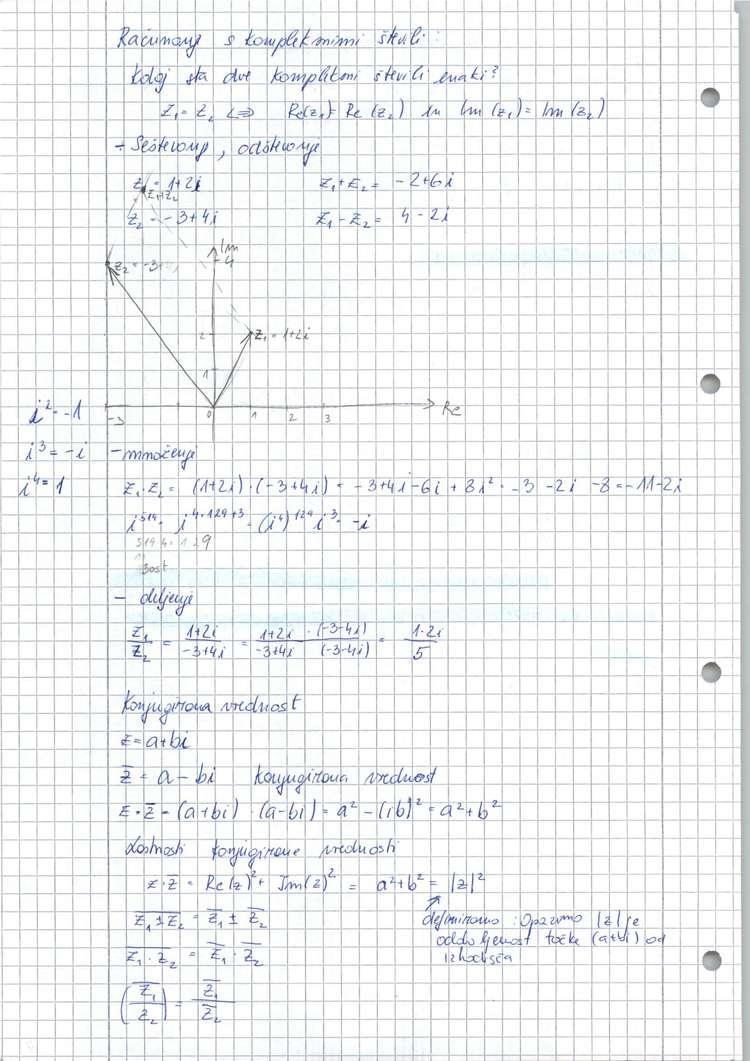 Računanje s kompleksnimi števili:
Kdaj sta dve kompleksni števili enaki?
z₁ = z₂ ⟺ Re(z₁) = Re(z₂) in Im(z₁) = Im(z₂)
- Seštevanje, odštevanje
z₁ = 1+2i z₁+z₂ = -2+6i
z₁+z₂
z₂ = -3+4i z₁-z₂ = 4-2i
Im
z₂ = -3+4i 4
2 z₁ = 1+2i
1
-3 0 1 2 3 Re
i² = -1
i³ = -i
i⁴ = 1
- množenje
z₁·z₂ = (1+2i)·(-3+4i) = -3+4i-6i+8i² = -3-2i-8 = -11-2i
i⁵¹⁹ = i⁴·¹²⁹⁺³ = (i⁴)¹²⁹ i³ = -i
519:4=129
3ost
- deljenje
z₁/z₂ = (1+2i)/(-3+4i) = (1+2i)/(-3+4i) · (-3-4i)/(-3-4i) = (1·2i)/5
Konjugirana vrednost
z = a+bi
z̅ = a-bi konjugirana vrednost
z·z̅ = (a+bi)·(a-bi) = a²-(ib)² = a²+b²
Lastnosti konjugirane vrednosti
z·z̅ = Re(z)² + Im(z)² = a²+b² = |z|²
definiramo: Opazimo |z| je
oddaljenost točke (a+bi) od
izhodišča
z̅₁̅ ̅±̅ ̅z̅₂̅ = z̅₁ ± z̅₂
z̅₁̅ ̅·̅ ̅z̅₂̅ = z̅₁ · z̅₂
(z̅₁/z₂) = z̅₁/z̅₂